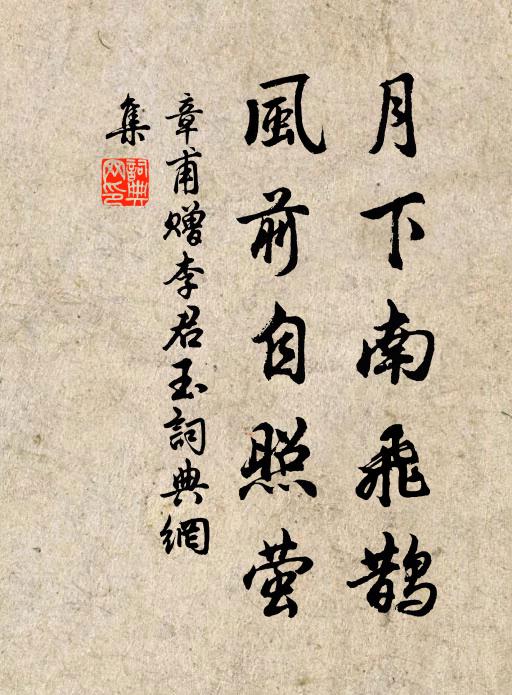 月下南飛鵲
風前自照萤
章甫赠李君玉詞典網
集
詞典网印